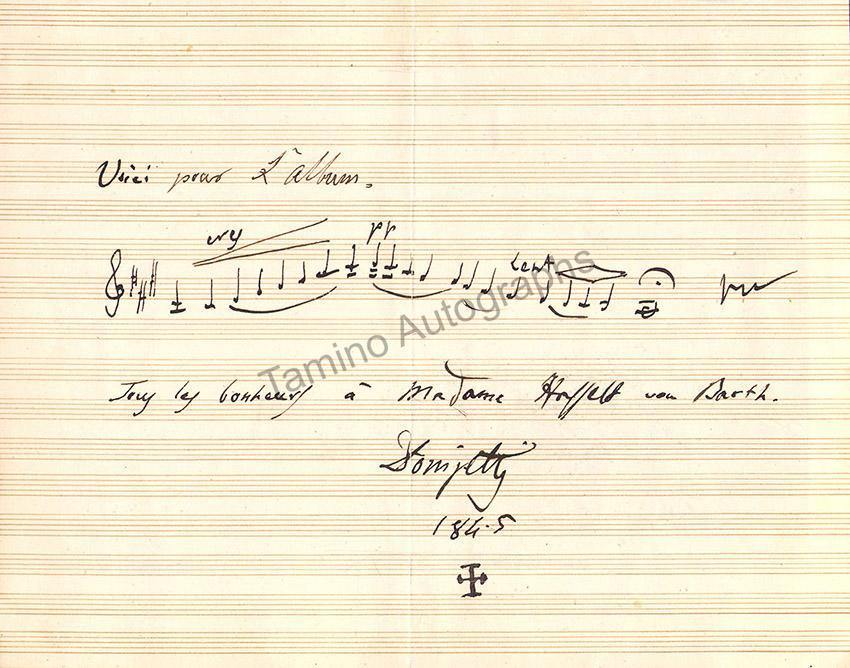 Voici pour L'album.
cres
pp
Lent
Tous les bonheurs à Madame Hasselt van Barth.
Donizetti
1845
Tamino Autographs